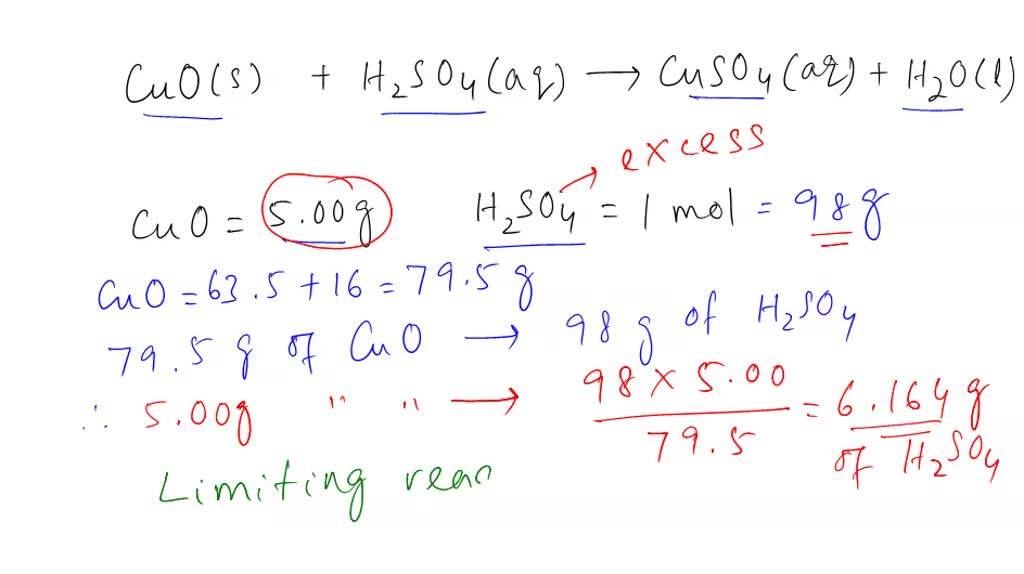 CuO(s) + H₂SO₄(aq) → CuSO₄(aq) + H₂O(l)
excess
CuO = 5.00g H₂SO₄ = 1 mol = 98g
CuO = 63.5 + 16 = 79.5 g
79.5 g of CuO → 98 g of H₂SO₄
∴ 5.00g " " → 98 × 5.00 / 79.5 = 6.164 g of H₂SO₄
Limiting reac